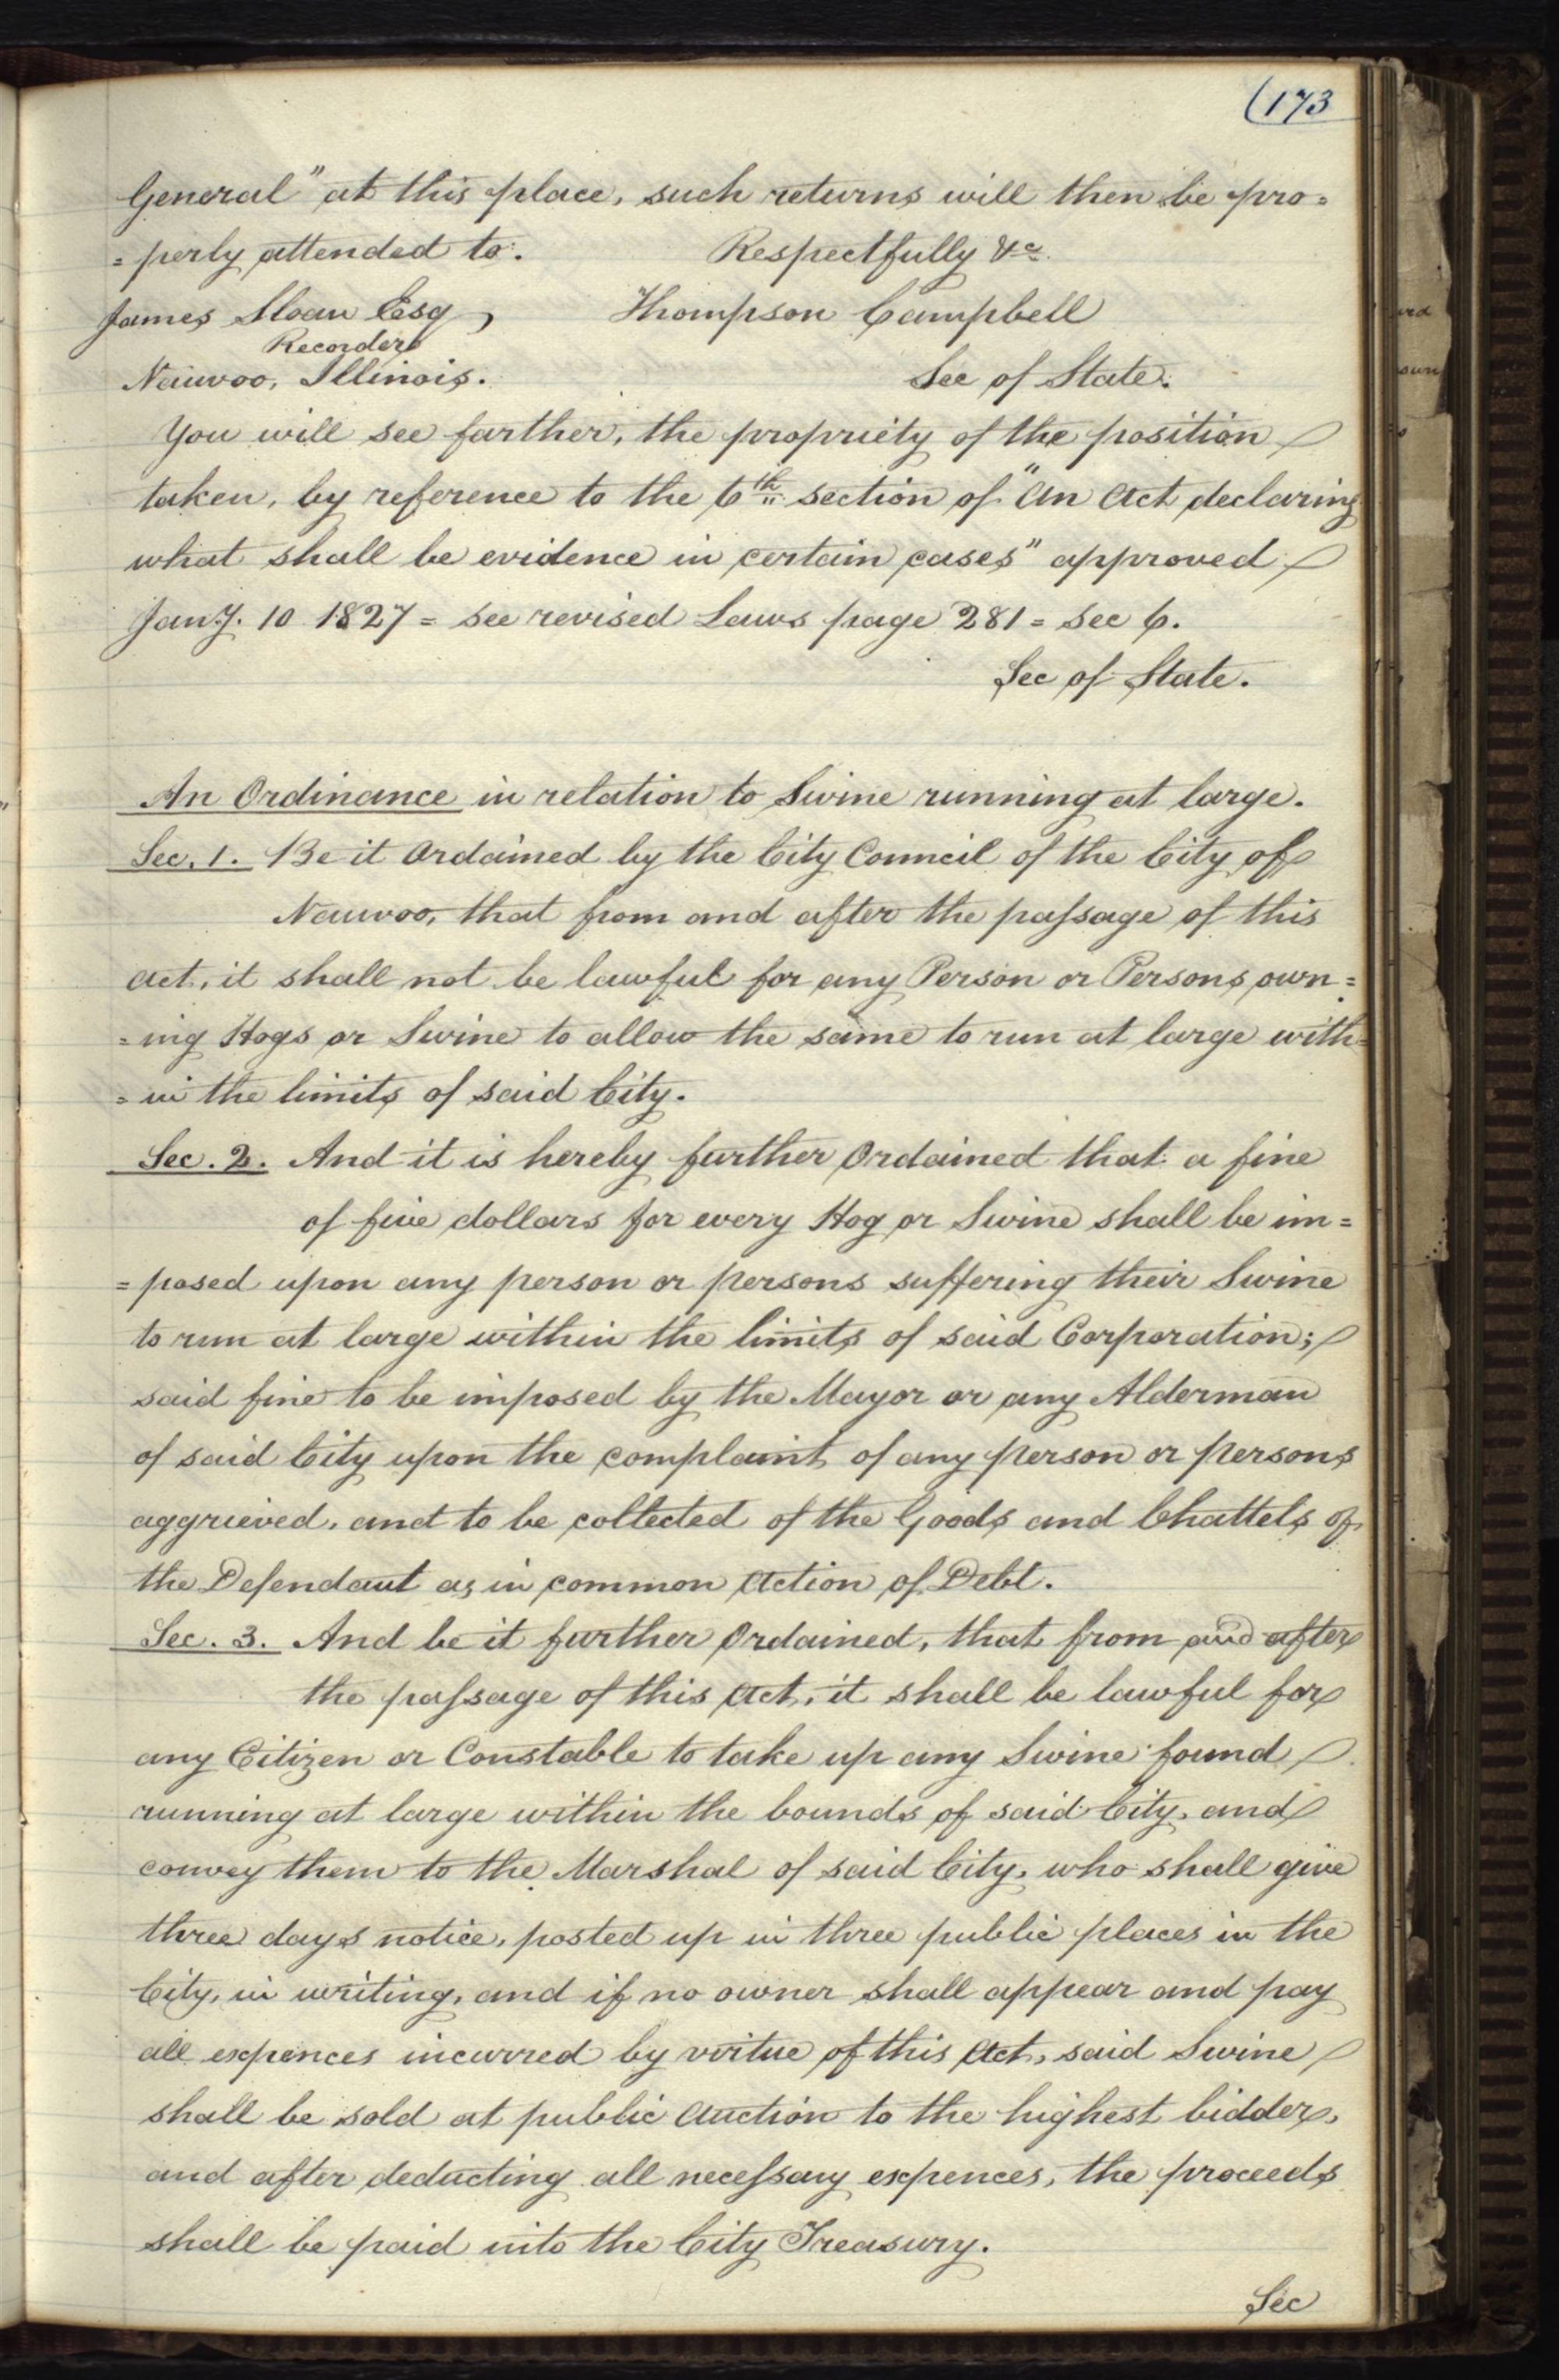 (173
General" at this place, such returns will then be pro=
=perly attended to. Respectfully &c.
James Sloan Esq, Thompson Campbell
Recorder
Nauvoo, Illinois. Sec of State.
You will see farther, the propriety of the position
taken, by reference to the 6th section of "An Act declaring
what shall be evidence in certain cases" approved
Jany. 10 1827 = see revised Laws page 281 = Sec 6.
Sec of State.
An Ordinance in relation to Swine running at large.
Sec. 1. Be it Ordained by the City Council of the City of
Nauvoo, that from and after the passage of this
Act, it shall not be lawful for any Person or Persons own=
=ing Hogs or Swine to allow the same to run at large with=
=in the limits of said City.
Sec. 2. And it is hereby further Ordained that a fine
of five dollars for every Hog or Swine shall be im=
=posed upon any person or persons suffering their Swine
to run at large within the limits of said Corporation;
said fine to be imposed by the Mayor or any Alderman
of said City upon the complaint of any person or persons
aggrieved, and to be collected of the Goods and Chattels of
the Defendant as in common Action of Debt.
Sec. 3. And be it further Ordained, that from and after
the passage of this Act, it shall be lawful for
any Citizen or Constable to take up any Swine found
running at large within the bounds of said City, and
convey them to the Marshal of said City, who shall give
three days notice, posted up in three public places in the
City, in writing, and if no owner shall appear and pay
all expences incurred by virtue of this Act, said Swine
shall be sold at public Auction to the highest bidder,
and after deducting all necessary expences, the proceeds
shall be paid into the City Treasury.
Sec